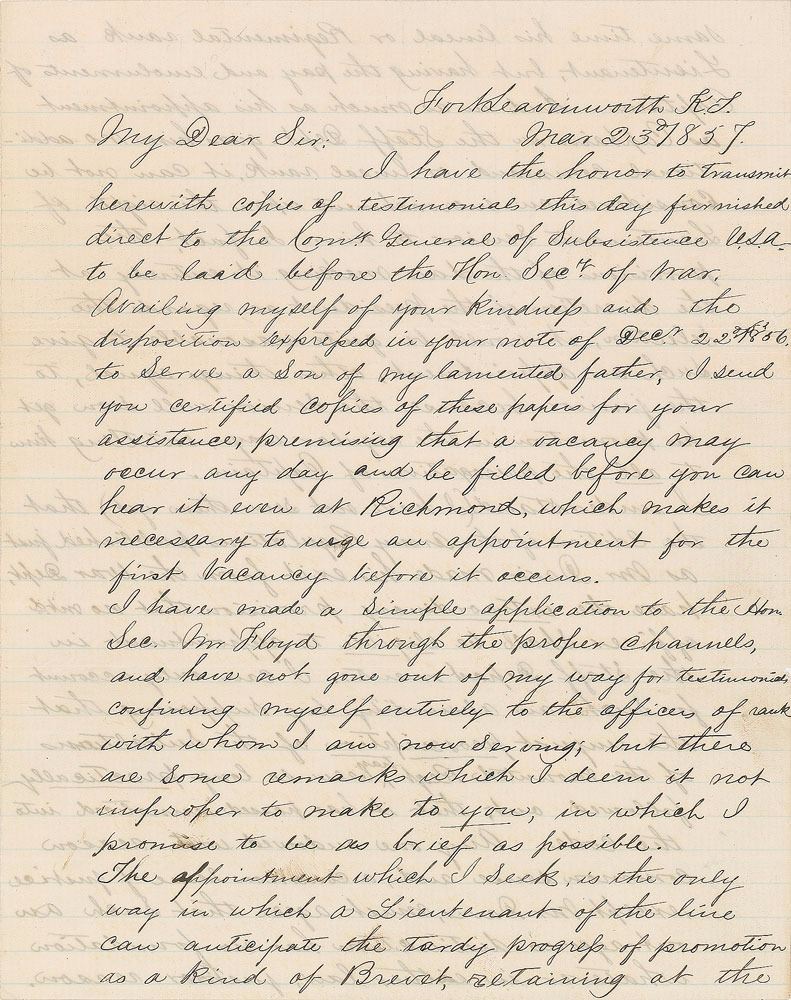 Fort Leavenworth K.T.
Mar 23d 1857.
My Dear Sir:
I have the honor to transmit
herewith copies of testimonials this day furnished
direct to the Comt General of Subsistence U.S.A.
to be laid before the Hon. Secty of War.
Availing myself of your kindness and the
disposition expressed in your note of Decr 22d 1856.
to Serve a Son of my lamented father, I send
you certified copies of these papers for your
assistance, premising that a vacancy may
occur any day and be filled before you can
hear it even at Richmond, which makes it
necessary to urge an appointment for the
first Vacancy before it occurs.
I have made a simple application to the Hon.
Sec. Mr Floyd through the proper channels,
and have not gone out of my way for testimonials
confining myself entirely to the officers of rank
with whom I am now serving; but there
are some remarks which I deem it not
improper to make to you, in which I
promise to be as brief as possible.
The appointment which I seek, is the only
way in which a Lieutenant of the line
can anticipate the tardy progress of promotion
as a kind of Brevet, retaining at the